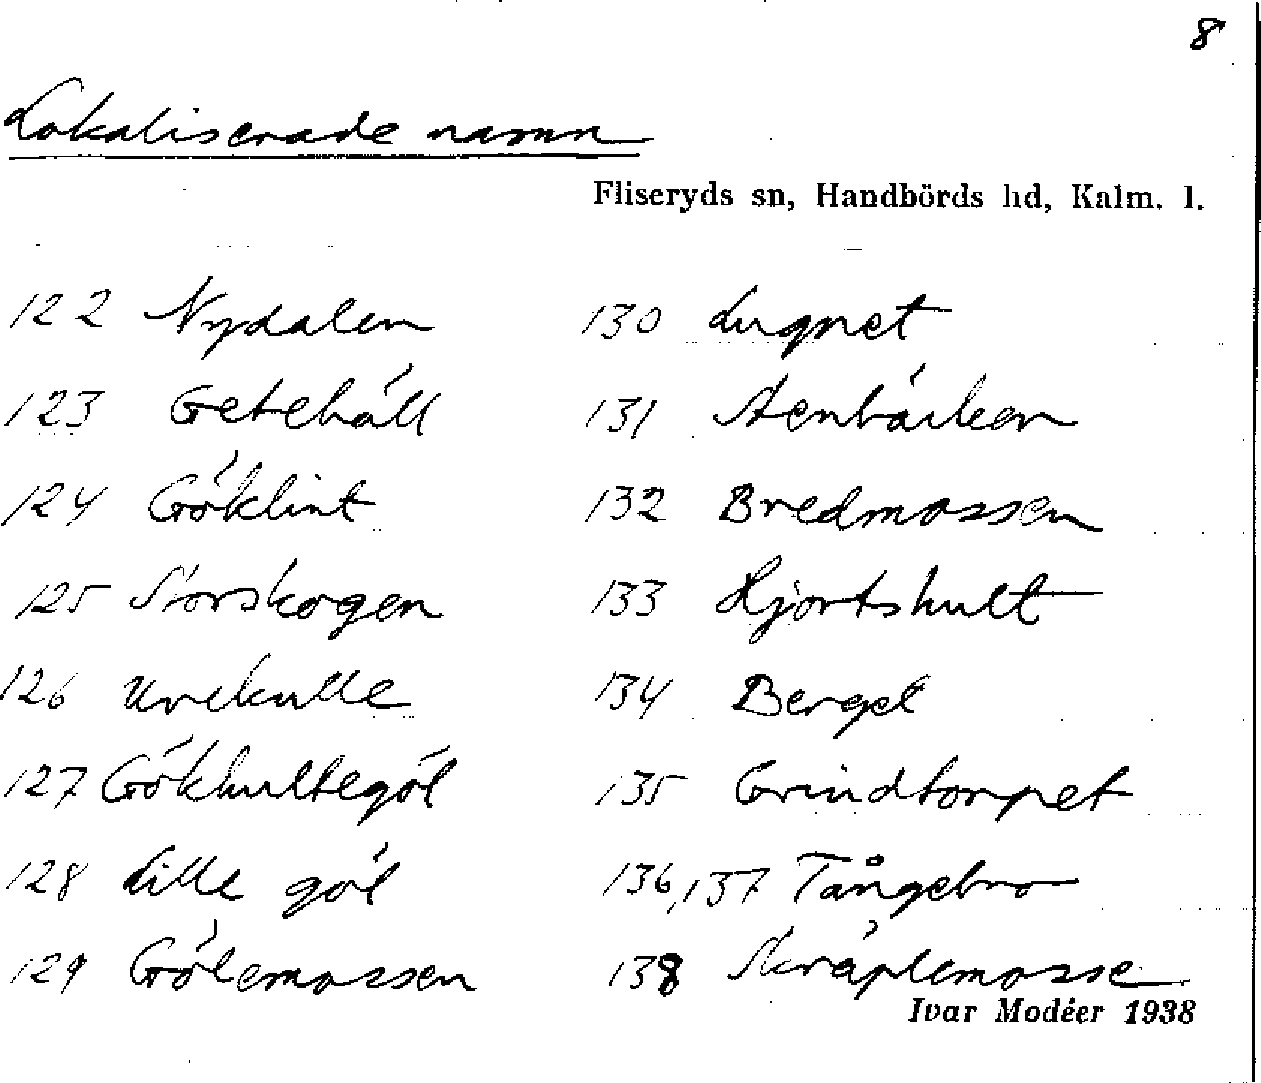 8
Lokaliserade namn
Fliseryds sn, Handbörds hd, Kalm. l.
122 Nydalen
123 Getehäll
124 Göklint
125 Storskogen
126 Urekulle
127 Gökhultegöl
128 Lille göl
129 Gölemossen
130 Lugnet
131
132 Bredmossen
133 Hjortshult
134 Berget
135 Grindtorpet
136, 137 Tångebro
138 Skräplemosse
Ivar Modéer 1938